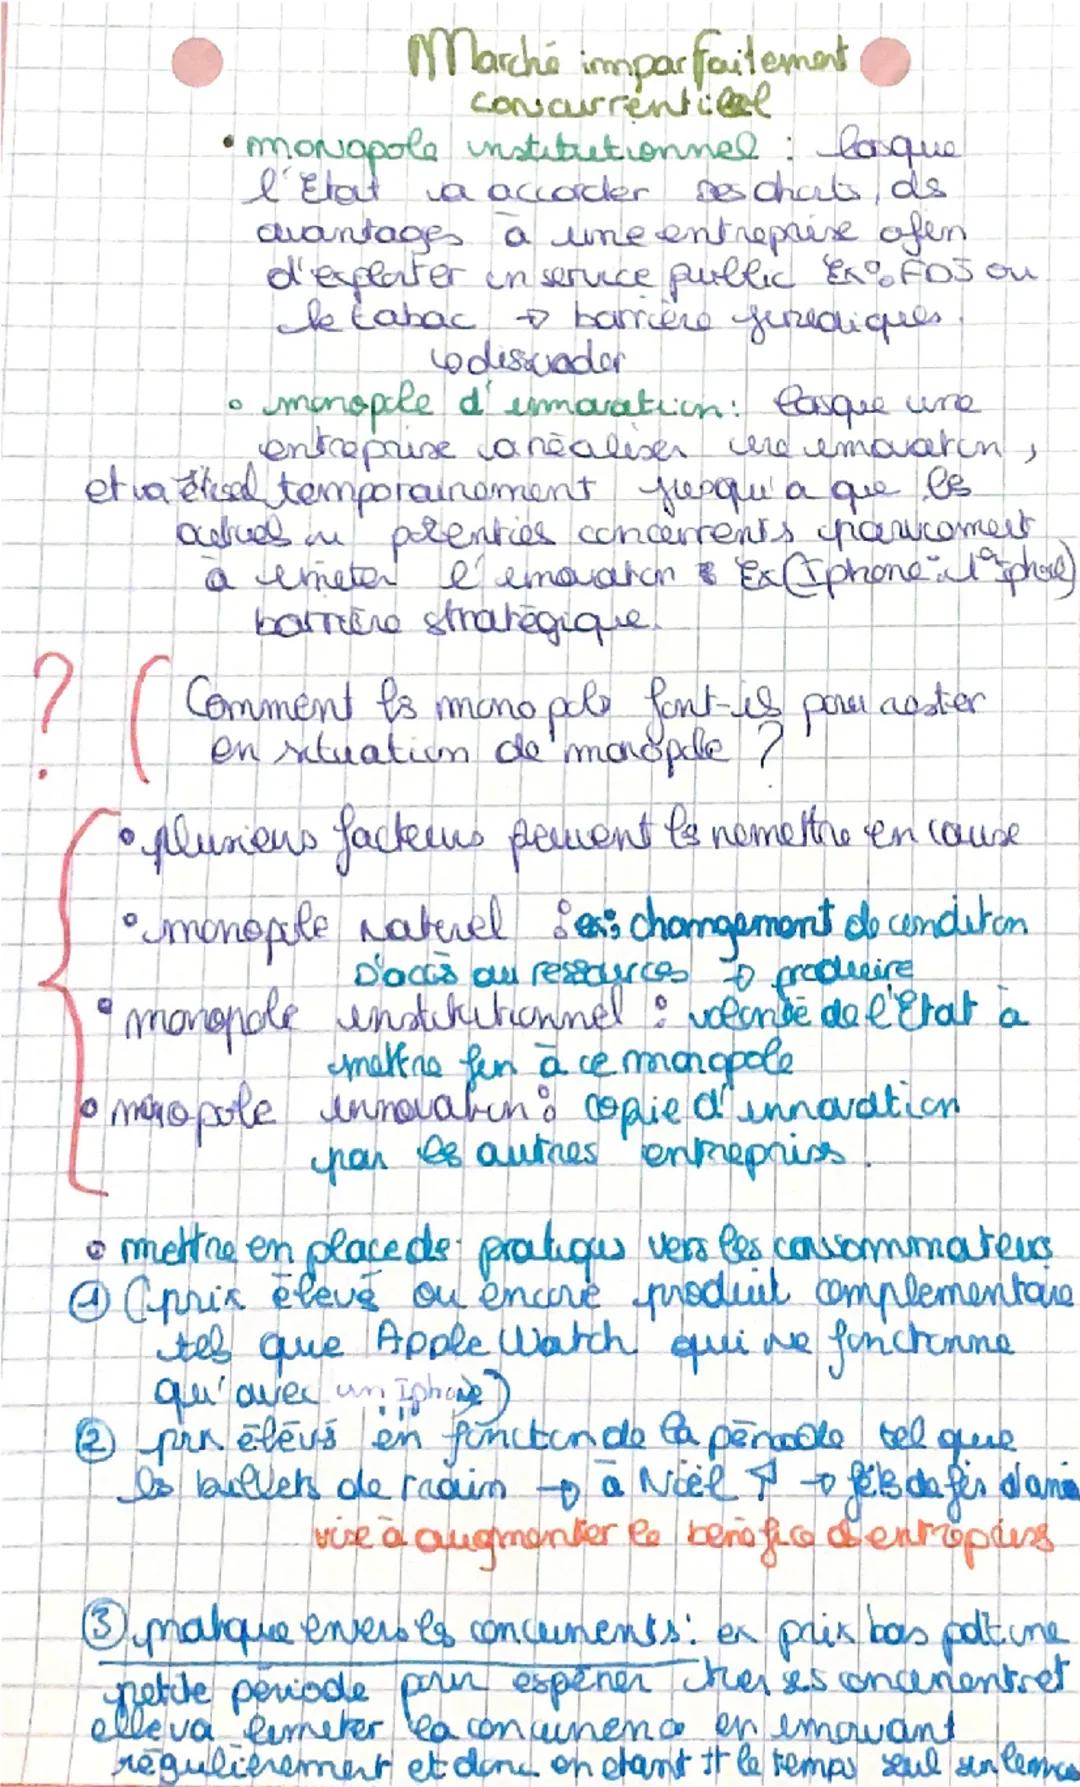 Marché imparfaitement
concurrentiel
• monopole institutionnel : lorsque
l'Etat va accorder des , ds
avantages à une entreprise afin
d'exploiter un service public Ex: FDJ ou
le tabac → barrière juridiques.
↳ dissuader
• monopole d'innovation: lorsque une
entreprise va réaliser une innovation,
et va temporairement jusqu'à que les
actuels ou potentiels concurrents parviennent
à imiter l'innovation Ex (Iphone: 1er iphone)
barrière stratégique.
? ( Comment ls monopole font-ils pour rester
en situation de monopole ?
• plusieurs facteurs peuvent ls remettre en cause
• monopole naturel : ex: changement de condition
d'accès au ressources → produire
• monopole institutionnel : volonté de l'Etat à
mettre fin à ce monopole
• monopole innovation: copie d'innovation
par les autres entrepriss.
• mettre en place ds pratiqus vers les consommateurs
① (prix élevé ou encore produit complementaire
tels que Apple Watch qui ne fonctionne
qu'avec un Iphone)
② prix élévés en fonction de la période tel que
ls billets de train → à Noël ↑ → fêts de fin d'année
vise à augmenter le bénéfice d'entreprises
③ pratique envers ls concurrents: ex prix bas pdt une
petite période pour espérer tuer ses concurrents et
elle va limiter la concurrence en innovant
régulièrement et donc en étant tt le temps seul sur le